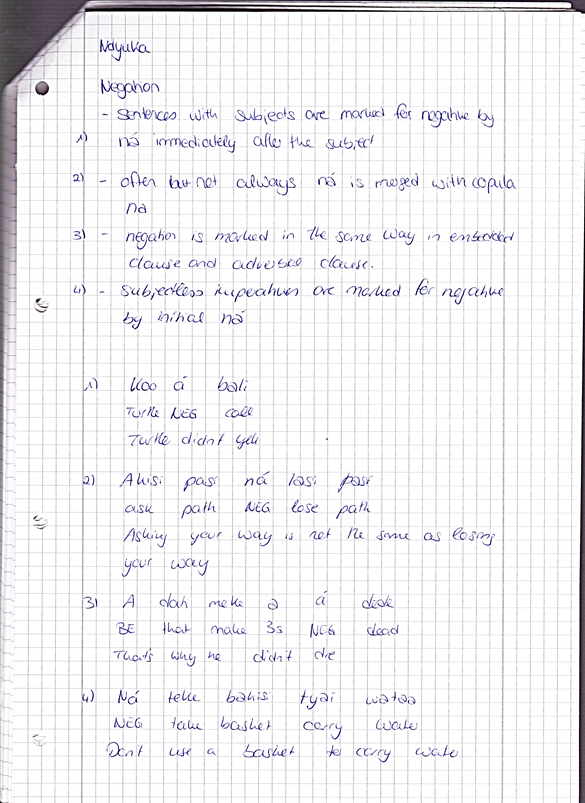 Ndyuka
Negation
- sentences with subjects are marked for negative by
1) ná immediately after the subject
2) - often but not always ná is merged with copula
na
3) - negation is marked in the same way in embedded
clause and adverbial clause.
4) - subjectless imperatives are marked for negative
by initial ná
1) Koo á bali
Turtle NEG call
Turtle didn't yell
2) Akisi pasi ná lasi pasi
ask path NEG lose path
Asking your way is not the same as losing
your way
3) A dah meke a á dede
BE that make 3s NEG dead
That's why he didn't die
4) Ná teke bakisi tyai wataa
NEG take basket carry water
Don't use a basket to carry water